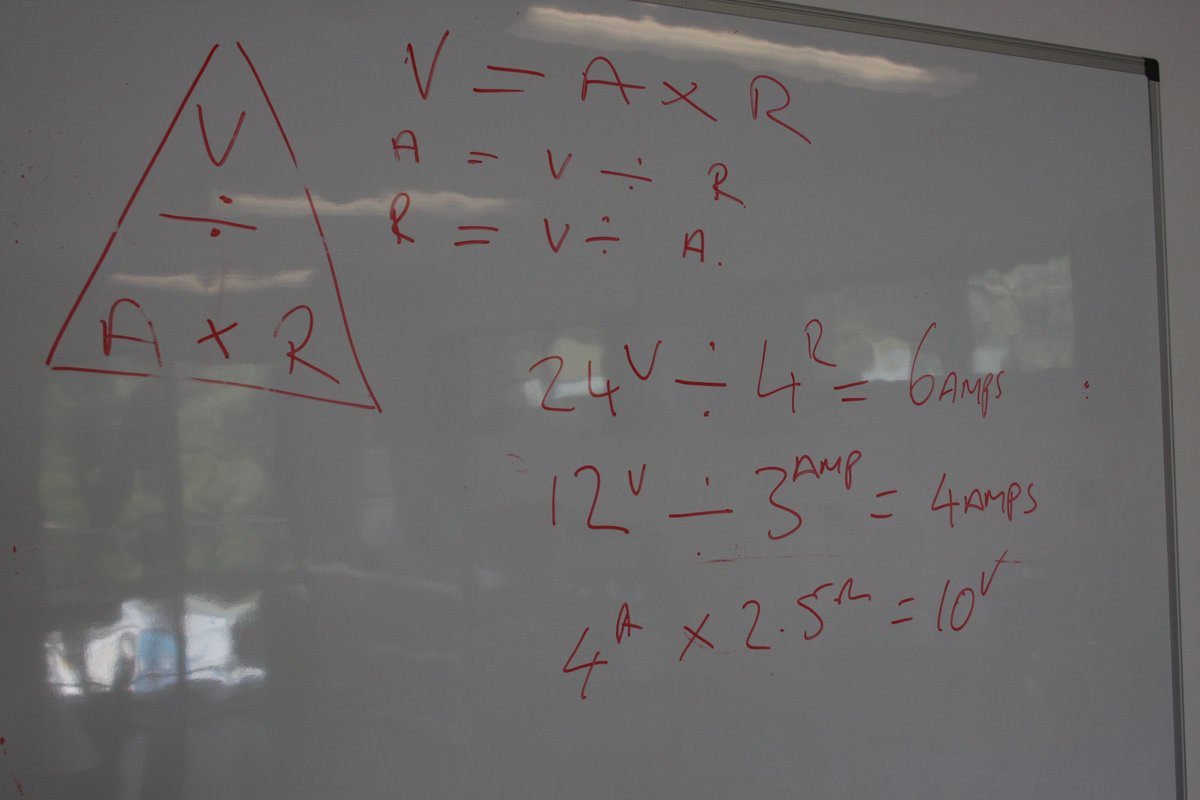 V
÷
A × R
V = A × R
A = V ÷ R
R = V ÷ A.
24V ÷ 4R = 6AMPS
12V ÷ 3AMP = 4AMPS
4A × 2.5R = 10V